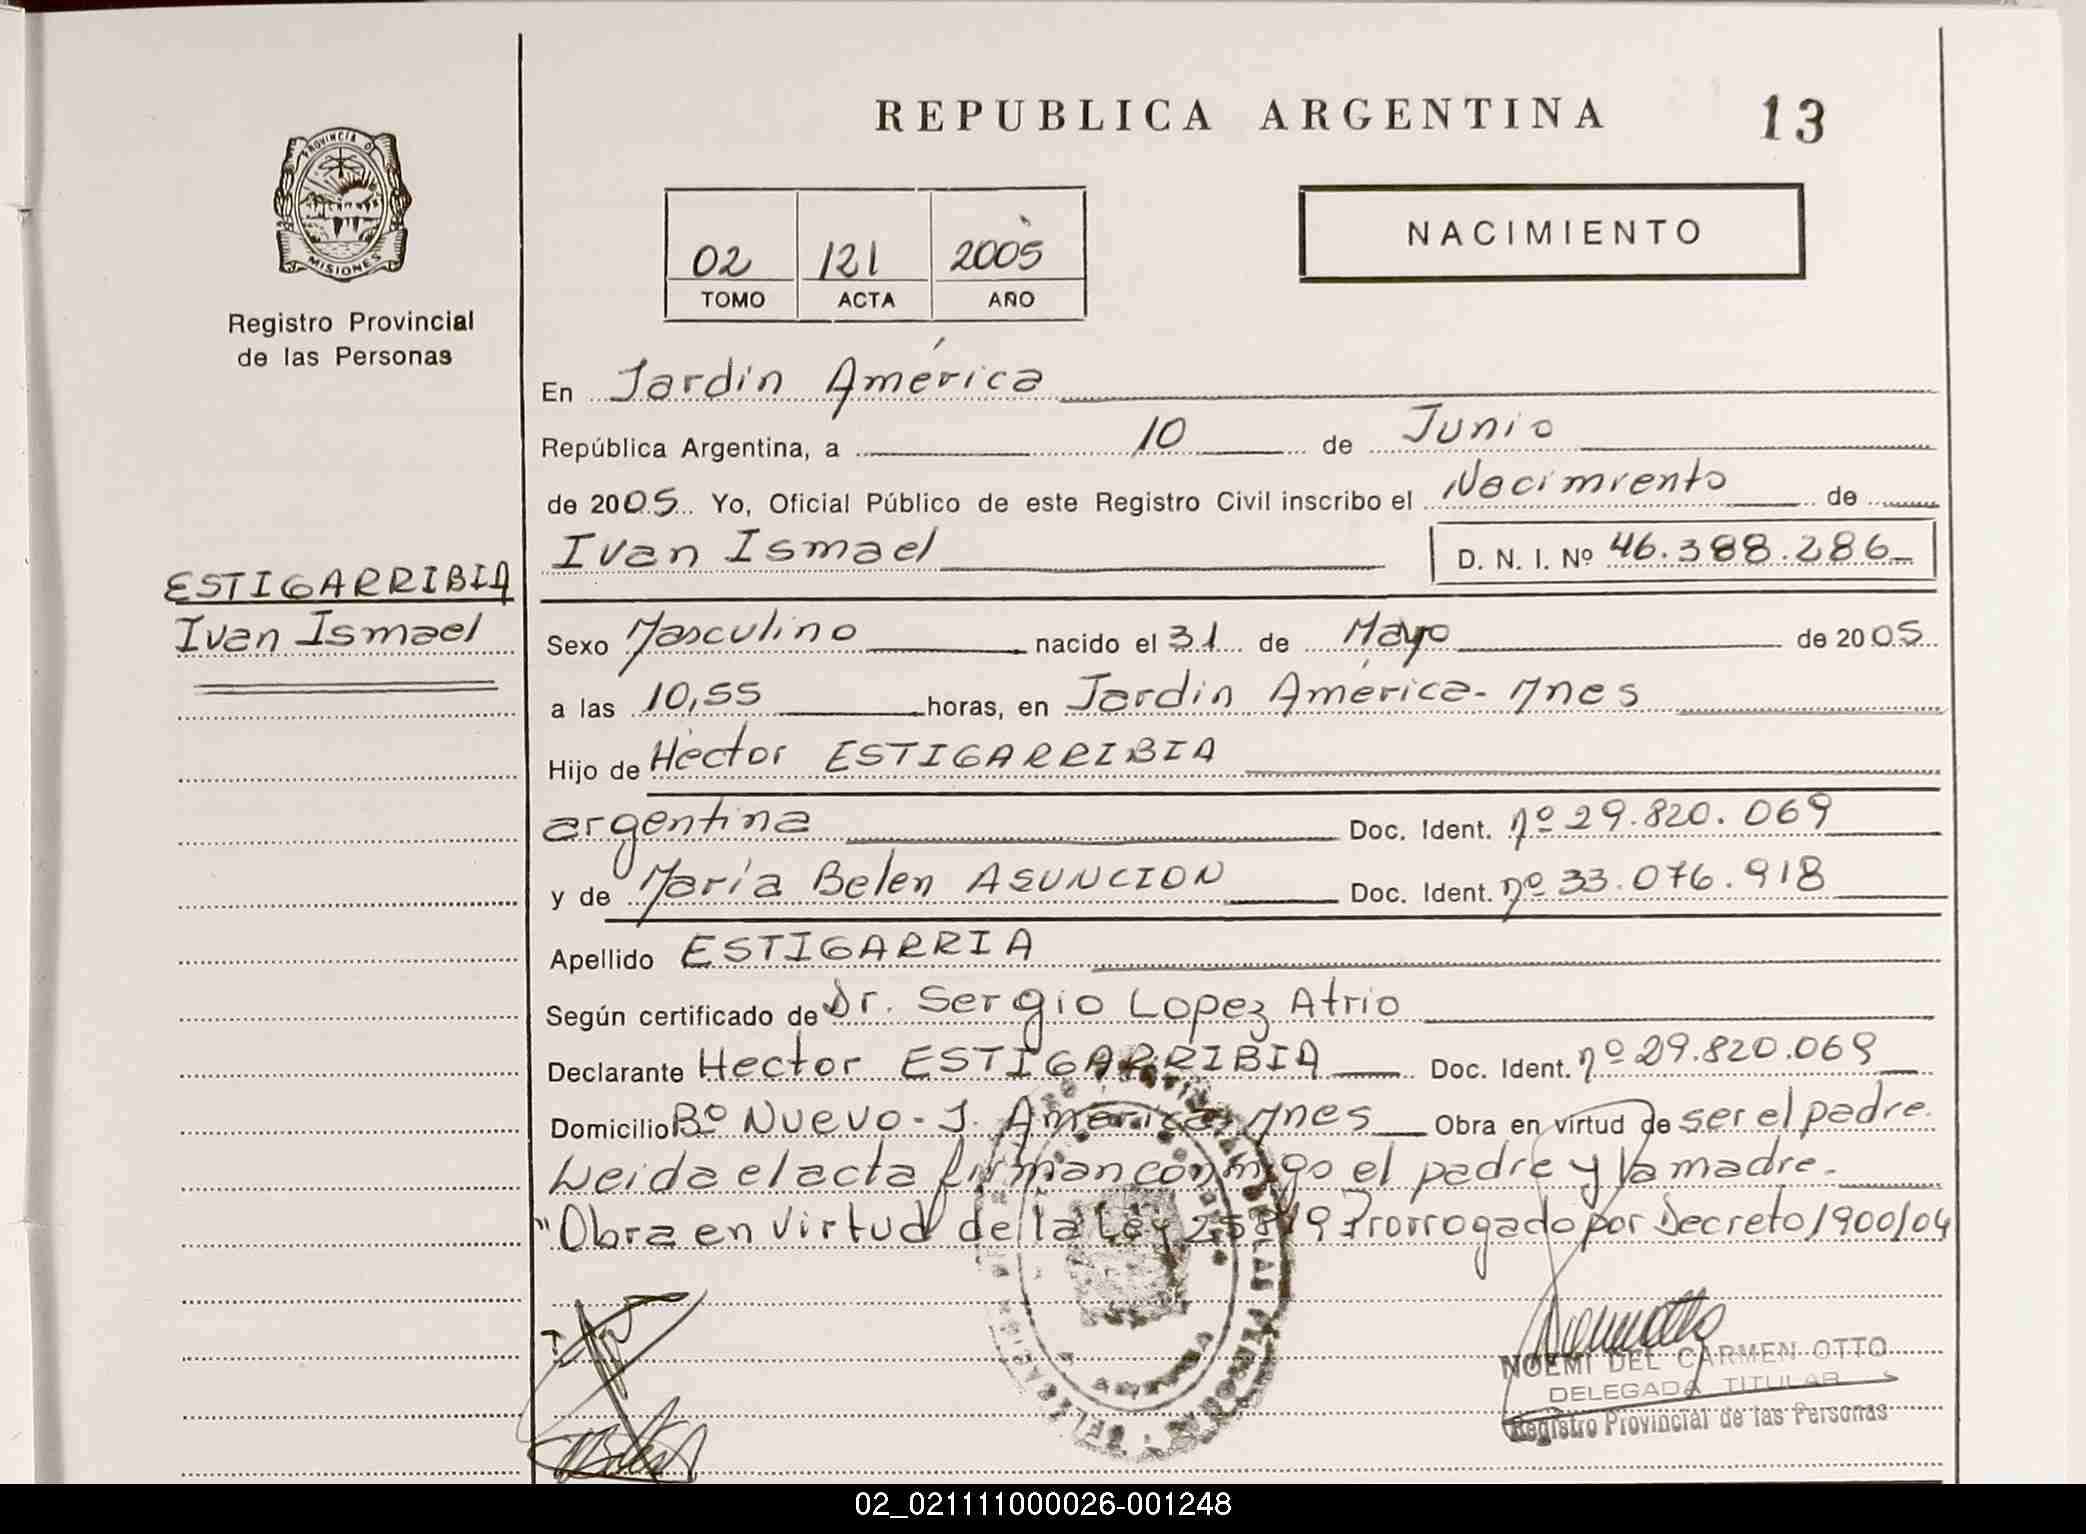 REPUBLICA ARGENTINA
13
PROVINCIA DE
MISIONES
Registro Provincial
de las Personas
02 121 2005
TOMO ACTA AÑO
NACIMIENTO
En Jardín América
República Argentina, a 10 de Junio
de 2005 Yo, Oficial Público de este Registro Civil inscribo el Nacimiento de
Ivan Ismael D. N. I. Nº 46.388.286
ESTIGARRIBIA
Ivan Ismael
Sexo Masculino nacido el 31 de Mayo de 2005
a las 10,55 horas, en Jardín América - Mnes
Hijo de Héctor ESTIGARRIBIA
argentina Doc. Ident. nº 29.820.069
y de María Belen ASUNCION Doc. Ident. nº 33.076.918
Apellido ESTIGARRIA
Según certificado de Dr. Sergio Lopez Atrio
Declarante Hector ESTIGARRIBIA Doc. Ident. nº 29.820.069
Domicilio Bº Nuevo - J. América Mnes Obra en virtud de ser el padre.
Leida el acta firman conmigo el padre y la madre.
"Obra en virtud de la Ley 25819 Prorrogado por Decreto 1900/04
NOEMI DEL CARMEN OTTO
DELEGADA TITULAR
Registro Provincial de las Personas
02_021111000026-001248